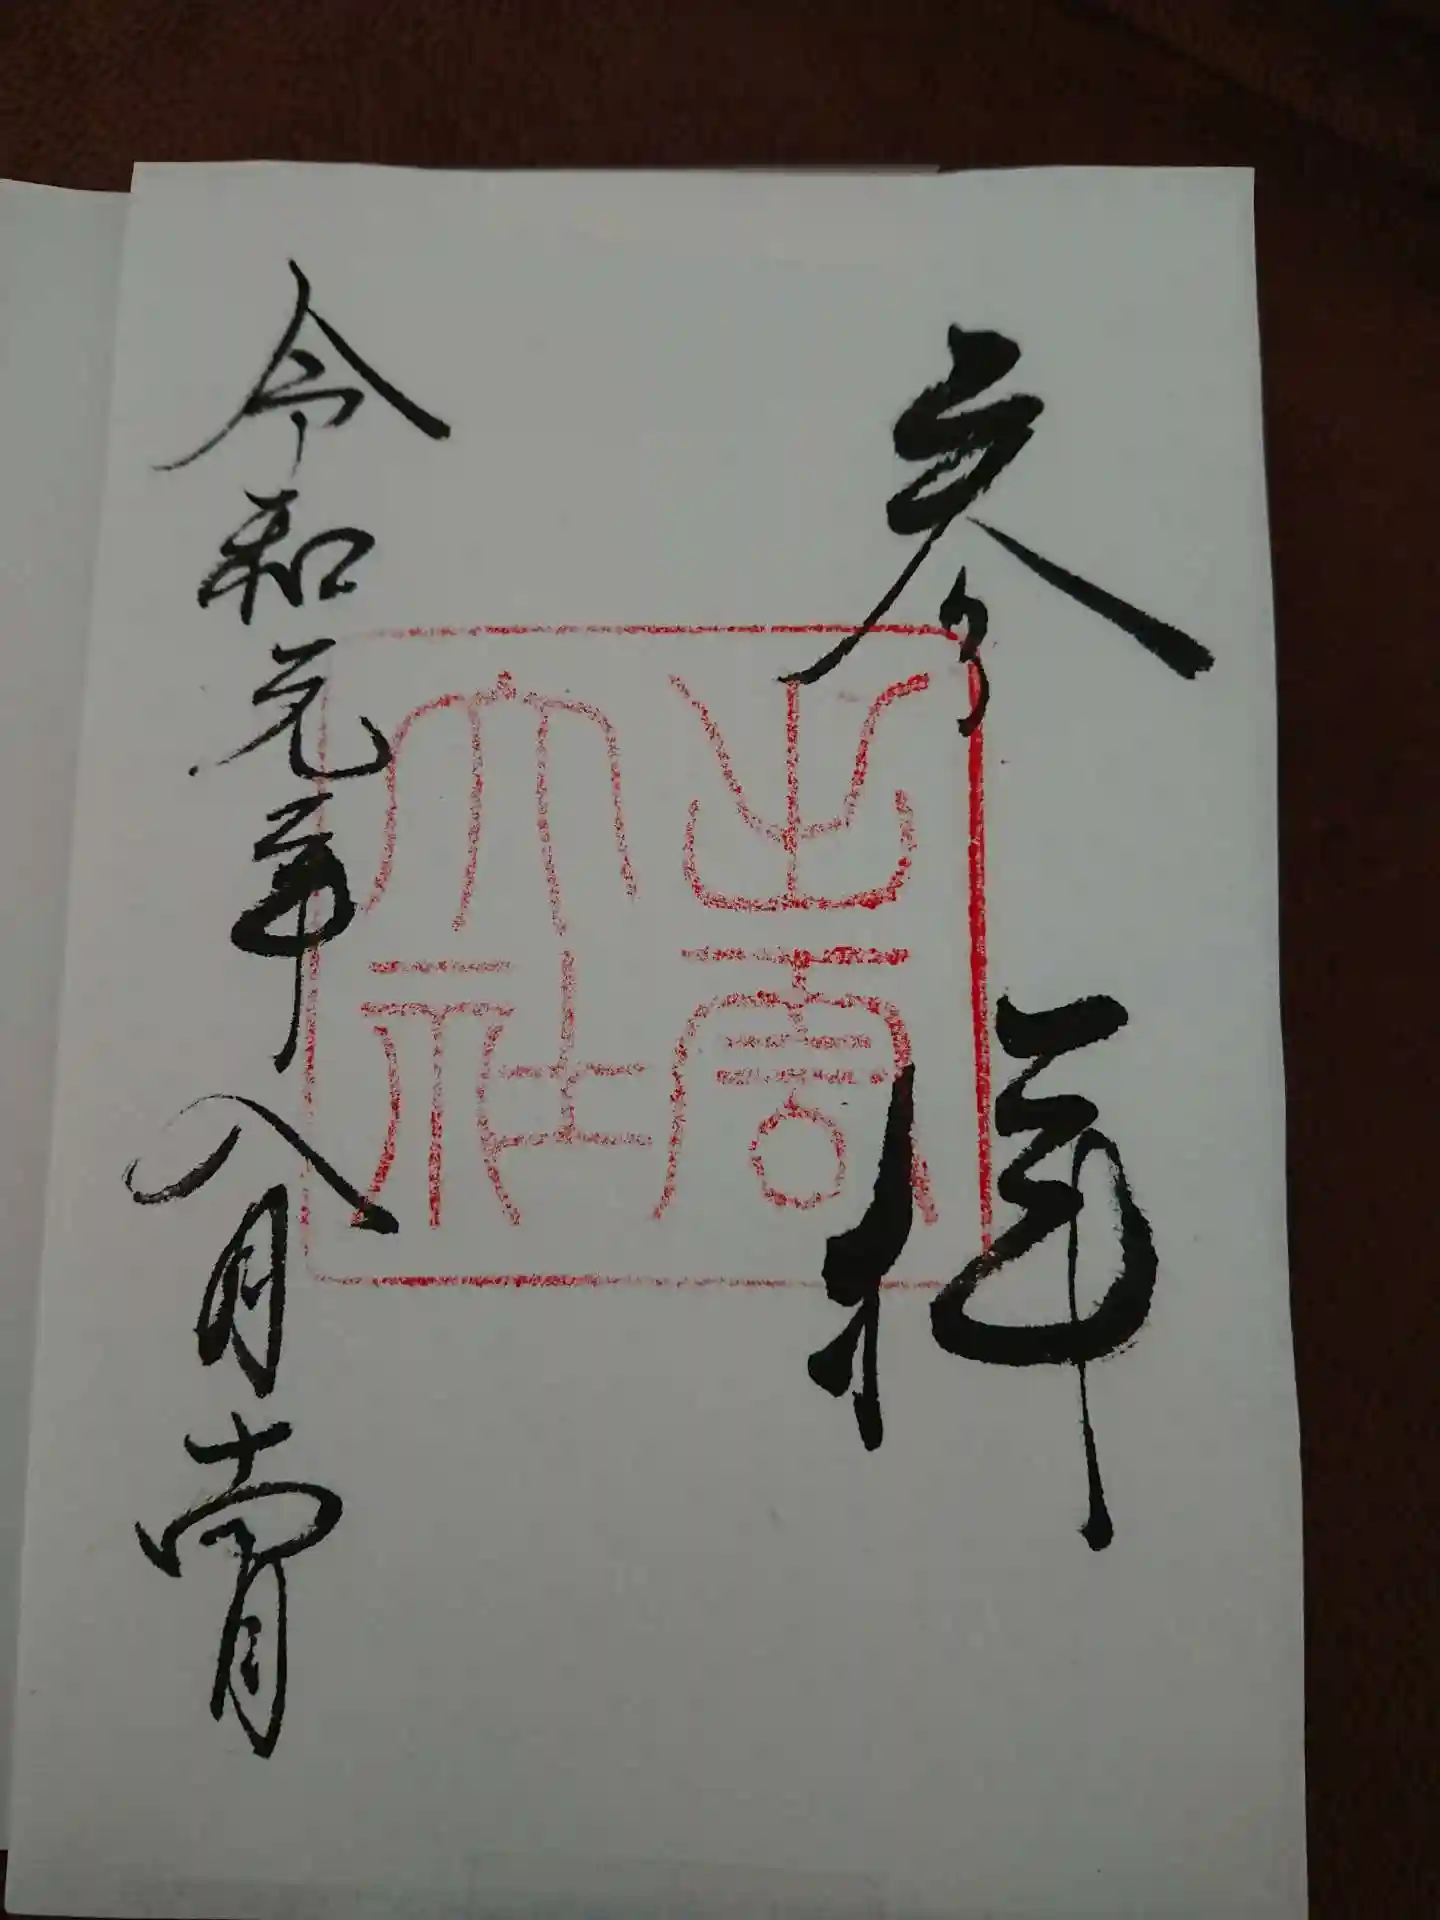 参拝
出雲
大社
令和元年八月十六日